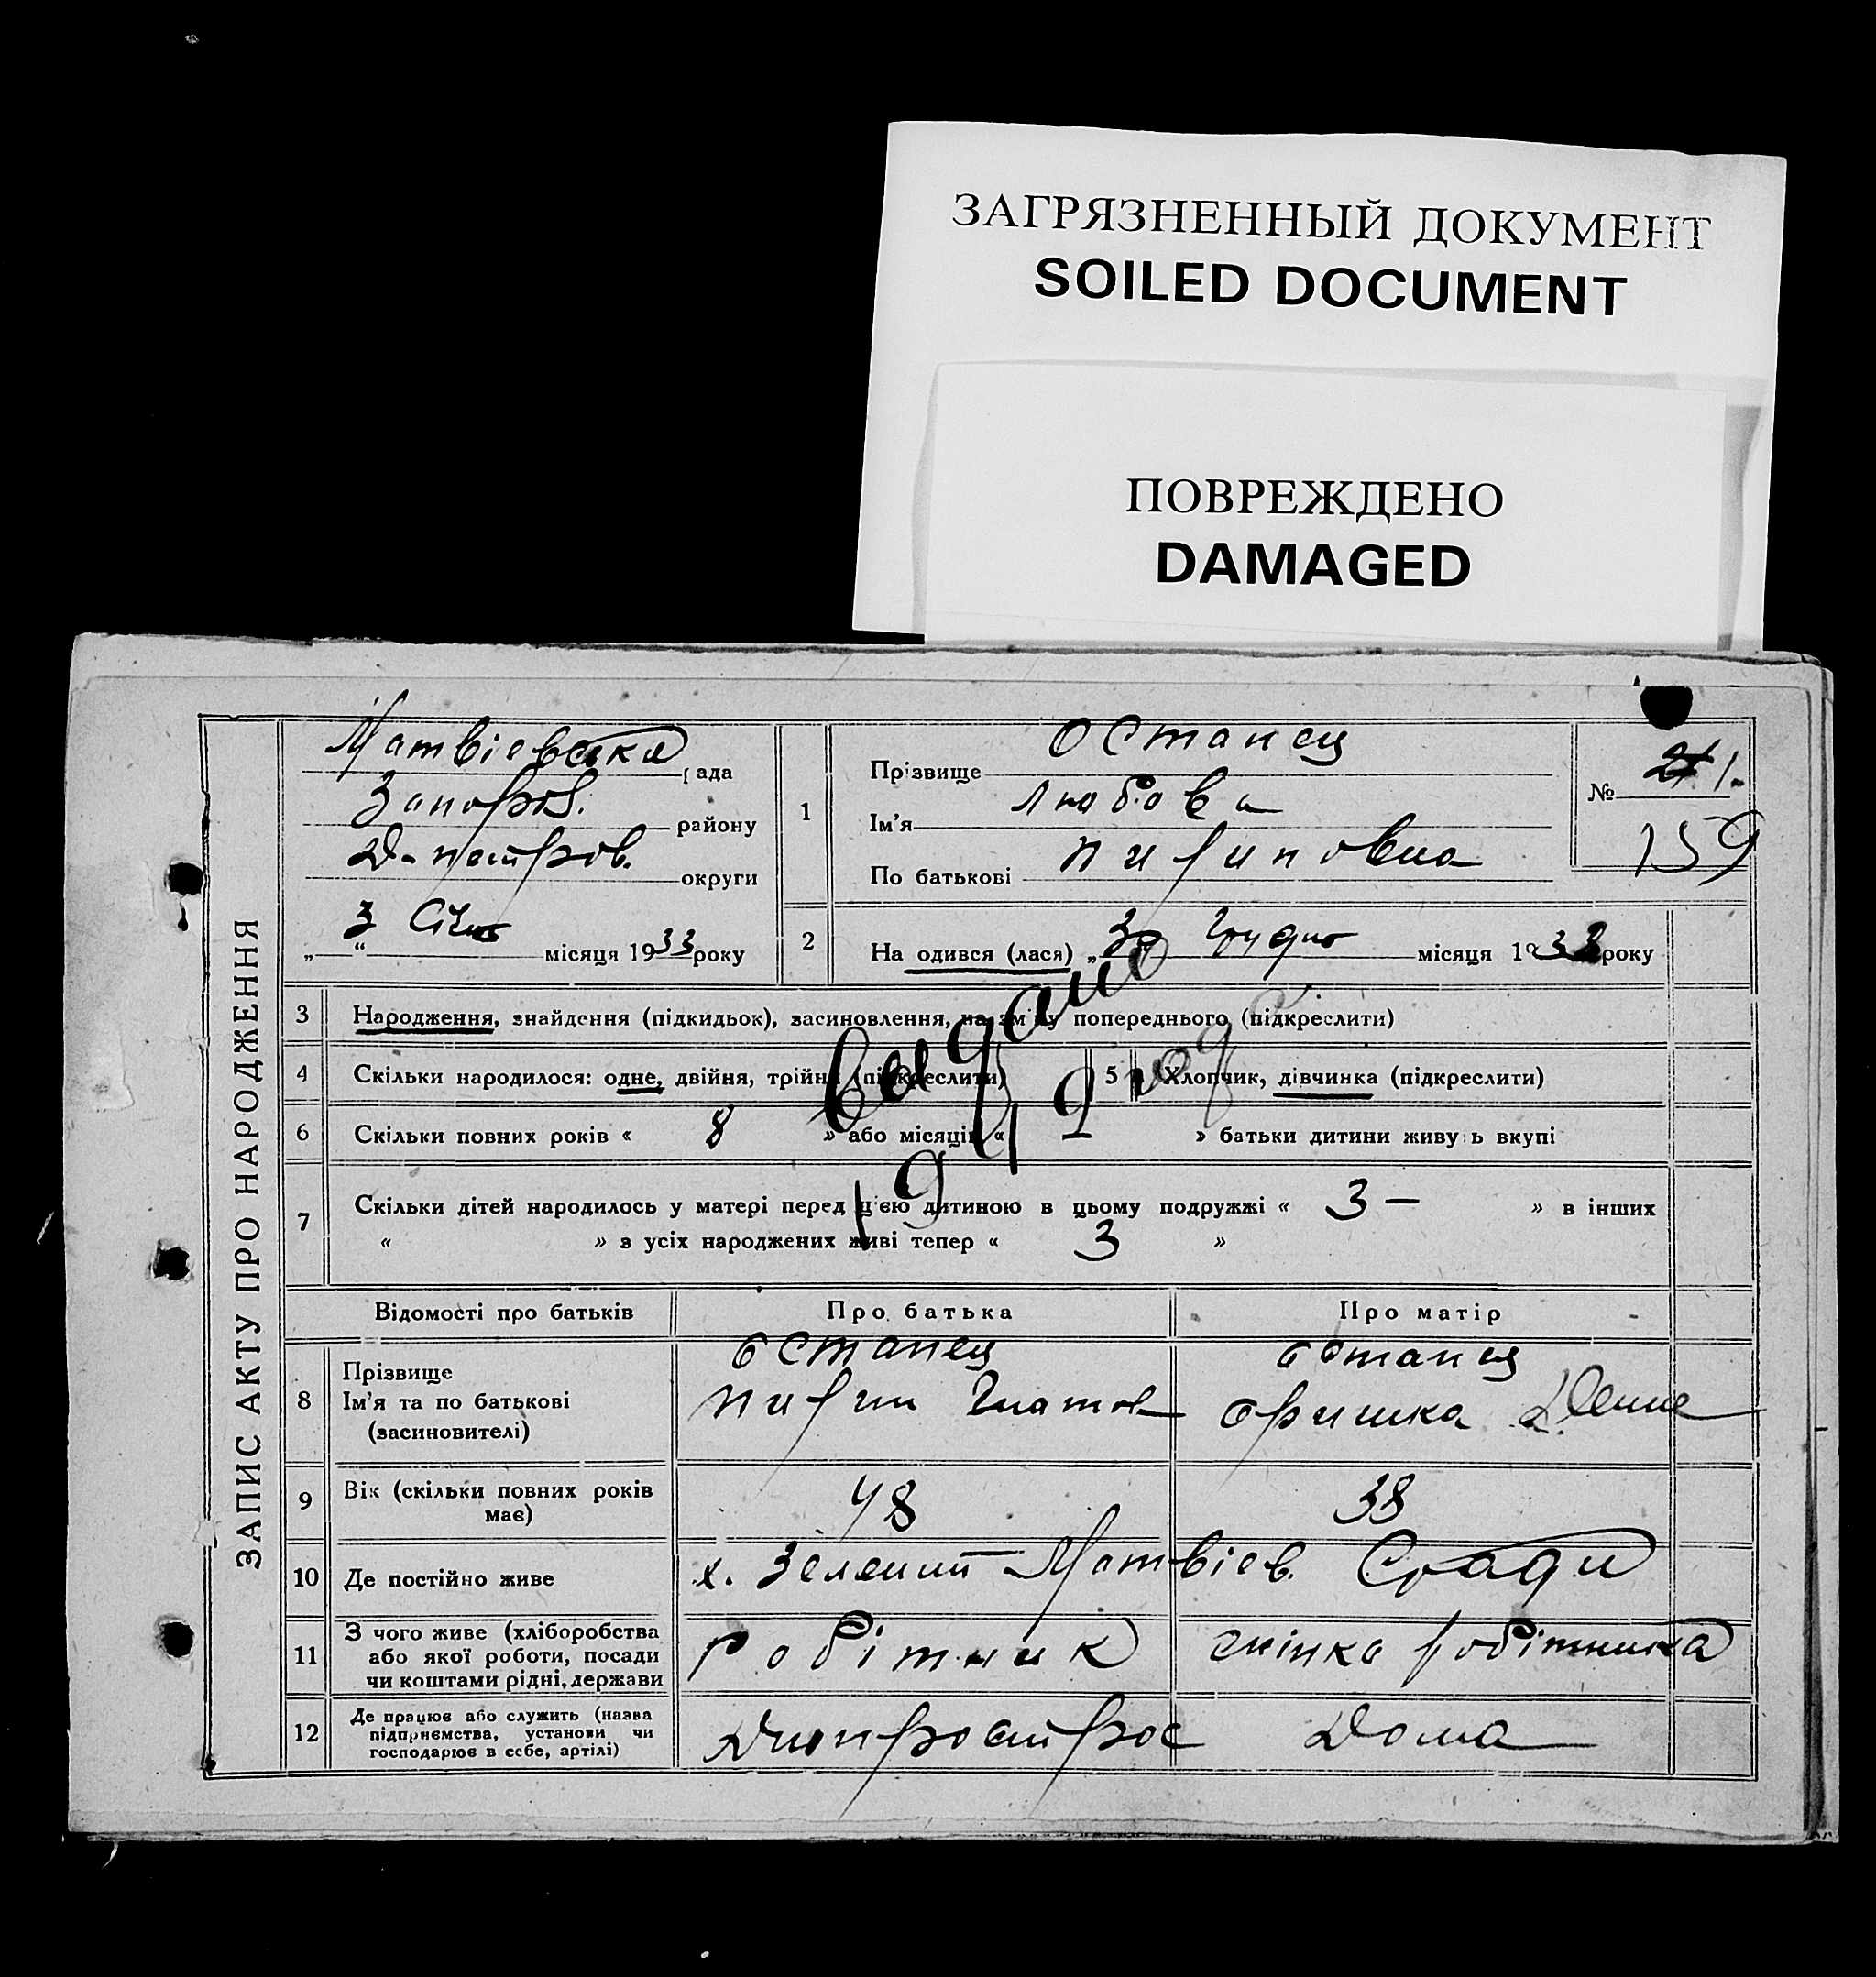 ЗАГРЯЗНЕННЫЙ ДОКУМЕНТ
SOILED DOCUMENT
ПОВРЕЖДЕНО
DAMAGED
ЗАПИС АКТУ ПРО НАРОДЖЕННЯ
Матвіевська рада
Запоріз. району
Д-петров. округи
„ 3 “ Січня місяця 1933 року
1
Прізвище Останец
Ім'я Любова
По батькові
№ 1.
159
2 Народився (лася) „ 30 Грудня місяця 19 року
3 Народження, знайдення (підкидьок), засиновлення, на зміну попереднього (підкреслити)
4 Скільки народилося: одне, двійня, трійня (підкреслити) 5 Хлопчик, дівчинка (підкреслити)
6 Скільки повних років « 8 » або місяців « – » батьки дитини живуть вкупі
7 Скільки дітей народилось у матері перед цією дитиною в цьому подружжі « 3 – » в інших
« » з усіх народжених живі тепер « 3 »
Відомості про батьків Про батька Про матір
8 Прізвище Останец Останец
Ім'я та по батькові Оришка
(засиновителі)
9 Вік (скільки повних років має) 48 38
10 Де постійно живе х. Зелений Матвіев. С-ради
11 З чого живе (хліборобства або якої роботи, посади чи коштами рідні, держави робітник жінка робітника
12 Де працює або служить (назва підприємства, установи чи господарює в себе, артілі) Дніпрострое Дома